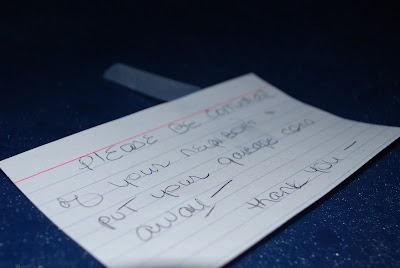 PLEASE BE Considerate
of your neighbors &
put your garbage cans
away —
thank you —